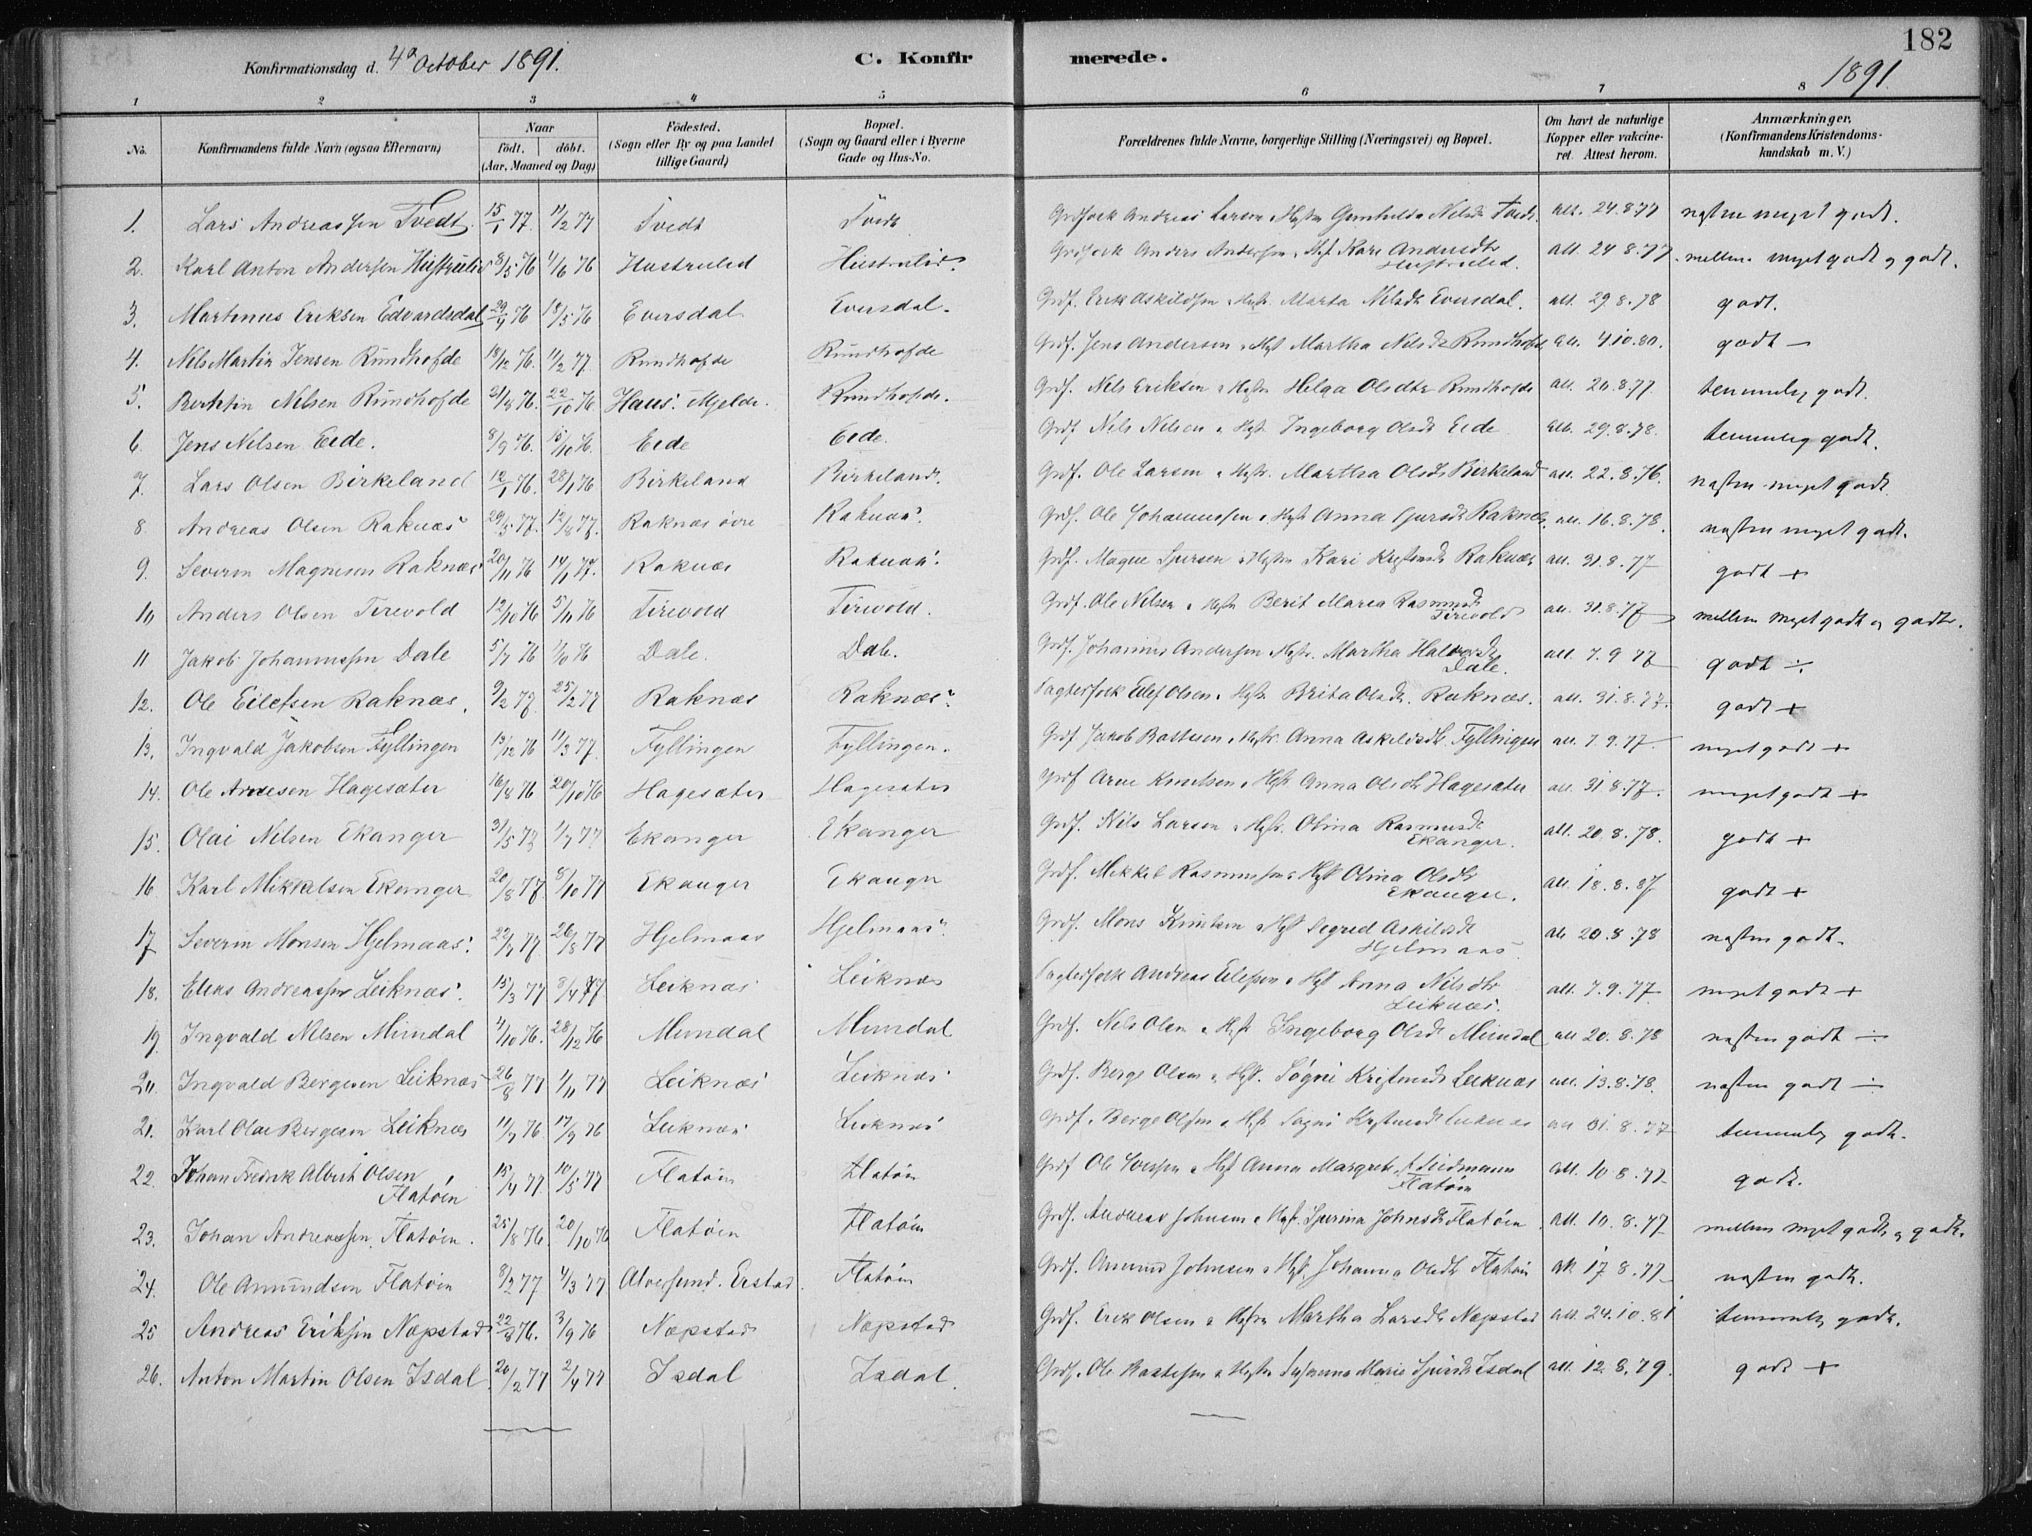 182
Konfirmationsdag d. 4de October 1891. C. Konfirmerede. 1891.
1 2 3 4 5 6 7 8
No. Konfirmandens fulde Navn (ogsaa Efternavn) Naar Født. døbt. (Aar, Maaned og Dag) Fødested. (Sogn eller By og paa Landet tillige Gaard) Bopæl. (Sogn og Gaard eller i Byerne Gade og Hus-No. Forældrenes fulde Navne, borgerlige Stilling (Næringsvei) og Bopæl. Om havt de naturlige Kopper eller vakcineret. Attest herom. Anmærkninger. (Konfirmandens Kristendomskundskab m. V.)
1. Lars Andreassen Tvedt. 15/1 77 11/2 77 Tvedt Tvedt Grdfolk Andreas Larsen Gunhilda Nilsdt Tvedt. att. 24.8.77 næsten meget godt.
2. Karl Anton Andersen Hustrulid 8/5 76 4/6 76 Hustruled Hustrulid. Grdfolk Anders Andersen Kari Andersdtr Hustruled. att 24 8.77 mellem meget godt og godt.
3. Martinus Eriksen Edvardsdal 29/4 76 18/5 76 Eversdal Eversdal. Grdf. Erik Askildsen Marta Nilsdt Eversdal. att. 29.8.78 godt.
4. Nils Martin Jensen Rundhofde 18/12 76. 11/2 77. Rundhofde Rundhofde Grdf. Jens Andersen Martha Nilsdt Rundhofde att. 4.10.80. godt —
5. Berthin Nilsen Rundhofde 21/8 76. 22/10 76. Haus. Mjelde. Rundhofde. Grdf. Nils Eriksen Helga Olsdtr Rundhofde att. 20.8.77 temmelig godt.
6. Jens Nilsen Eide. 8/9 76. 15/10 76. Eide Eide. Grdf Nils Nilsen Ingeborg Olsdt Eide att. 29.8.78. temmelig godt.
7. Lars Olsen Birkeland 12/1 76. 28/1 76 Birkeland Birkeland. Grdf. Ole Larsen Martha Olsdt Birkeland att. 22.8.76. næsten meget godt
8 Andreas Olsen Raknæs 29/5 77. 12/8 77. Raknæs øvre Raknæs. Grdf. Ole Johannessen Anna Raknæs. att. 16.8.78. næsten meget godt.
9. Severin Magnesen Raknæs 20/11 76 14/1 77. Raknæs Raknæs. Grdf. Magne Kari Raknæs att. 31.8.77 godt +
10 Anders Olsen Tirevold 12/10 76 5/11 76 Tirevold Tirevold. Grdf. Ole Nilsen Berit Maria Rasmusdt Tirevold att. 31.8.77 mellem meget godt og godt.
11 Jakob Johannessen Dale 5/7 76 76 Dale. Dale. Grdf. Johannes Andersen Martha Dale. att. 7.9 77 godt ÷
12. Ole Eilefsen Raknæs. 9/2 77. 25/2 77 Raknæs Raknæs. Eilef Olsen Brita Olsdt. Raknæs. att. 31.8.77. godt +
13. Ingvald Jakobsen Fyllingen 13/12 76 11/3 77. Fyllingen Fyllingen. Grdf Jakob Anna Askildsdt Fyllingen att. 7.9.77. meget godt +
14. Ole Arnesen Hagesæter 16/8 76 20/10 76 Hagesæter Hagesæter Grdf Arne Knudsen Anna Olsdt Hagesæter att. 31 8.77. meget godt +
15. Olai Nilsen Ekanger 31/5 77 1/7 77 Ekanger Ekanger Grdf. Nils Larsen Olina Rasmusdt Ekanger. att. 20.8.78. godt +
16 Karl Mikkelsen Ekanger 20/8 77 8/10 77 Ekanger Ekanger Grdf. Mikkel Rasmussen Olina Olsdt Ekanger. att. 18.8.87 godt +
17 Severin Monsen Hjelmaas. 22/7 77 26/8 77 Hjelmaas Hjelmaas. Grdf. Mons Knudsen Sigred Askildsdt Hjelmaas. att 20.8.78 næsten godt.
18. Elias Andreassen Leiknæs. 15/3 77 8/4 77 Leiknæs Leiknæs Andreas Eilefsen Anna Nilsdtr Leiknæs. att. 7.9.77 meget godt +
19 Ingvald Nilsen Mundal 4/10 76. 28/12 76 Mundal Mundal Grdf. Nils Olsen Ingeborg Olsdt Mundal att 20.8.78 næsten godt ÷
20. Ingvald Bergesen Leiknæs 26/8 77 4/11 77 Leiknæs Leiknæs Grdf. Berge Olsen Leiknæs att. 13.8.78. næsten godt ÷
21. Karl Olai Bergesen Leiknæs 11/7 76 17/9 76 Leiknæs Leiknæs Grdf. Berge Olsen Leiknæs att 31.8.77 temmelig godt.
22. Johan Fredrik Albert Olsen Flatøen 15/4 77 10/5 77 Flatøen Flatøen Grdf Ole Anna Margret Flatøen att. 10.8.77 godt.
23. Johan Andreassen Flatøen. 25/8 76. 20/10 76 Flatøen Flatøen Grdf. Andreas Johnsen Johnsdt Flatøen att. 10.8.77 mellem meget godt og godt.
24. Ole Amundsen Flatøen 8/2 77 4/3 77 Alversund. Erstad Flatøen Grdf. Amund Johnsen Johanna Olsdt Flatøen att. 17.8.77 næsten godt.
25 Andreas Eriksen Næpstad 22/8 76. 3/9 76 Næpstad Næpstad Grdf. Erik Olsen Martha Larsdt Næpstad att. 24.10.81 temmelig godt.
26. Anton Martin Olsen Isdal 20/2 77 2/4 77 Isdal Isdal. Grdf. Ole Susanna Marie Isdal att. 12.8.79. godt +